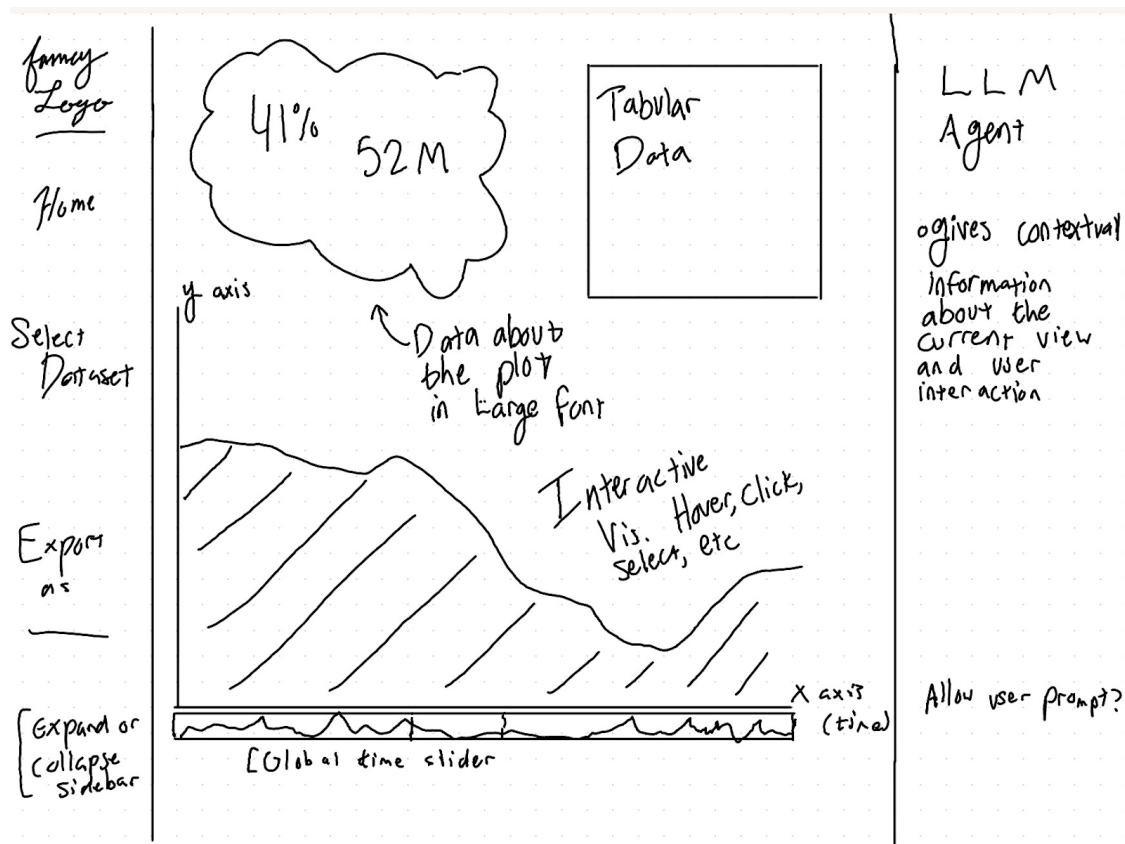 fancy
Logo
Home
Select
Dataset
Export
as
[Expand or
collapse
sidebar
41%
52M
Data about
the plot
in Large font
Tabular
Data
y axis
Interactive
Vis. Hover, Click,
select, etc
x axis
(time)
[Global time slider
LLM
Agent
o gives contextual
information
about the
current view
and user
interaction
Allow user prompt?